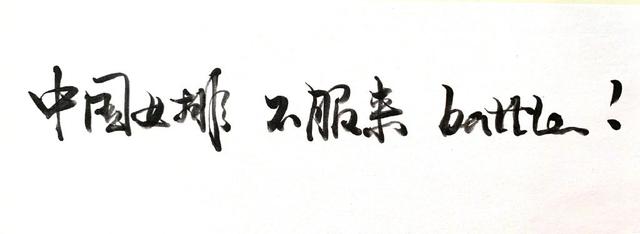 中国女排 不服来 battle！